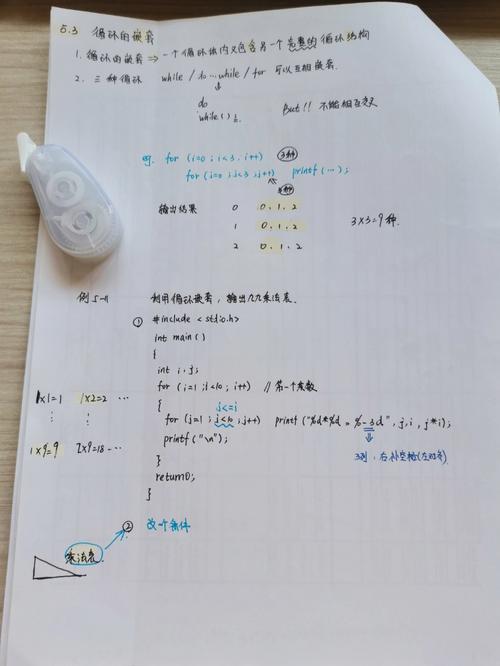 5.3 循环的嵌套
1. 循环的嵌套 ⇒ 一个循环体内又包含另一个完整的循环结构
2. 三种循环 while / do...while / for 可以互相嵌套.
do
while();
But!! 不能相互交叉
eg. for (i=0 ; i<3 ; i++) 3种
for (j=0 ; j<3 ; j++) printf (...);
3种
输出结果 0 0, 1, 2
1 0, 1, 2 3×3=9 种.
2 0, 1, 2
例 5-11 利用循环嵌套, 输出九九乘法表.
① #include <stdio.h>
int main()
{
int i, j;
for (i=1 ; i<10 ; i++) // 第一个乘数
1×1=1 1×2=2 ...
{ j<=i
for (j=1 ; j<10 ; j++) printf ("%d*%d = %-3d", j, i, j*i);
printf ("\n");
1×9=9 2×9=18 ...
3列, 右补空格(左对齐)
}
return 0;
}
② 改个条件
乘法表.